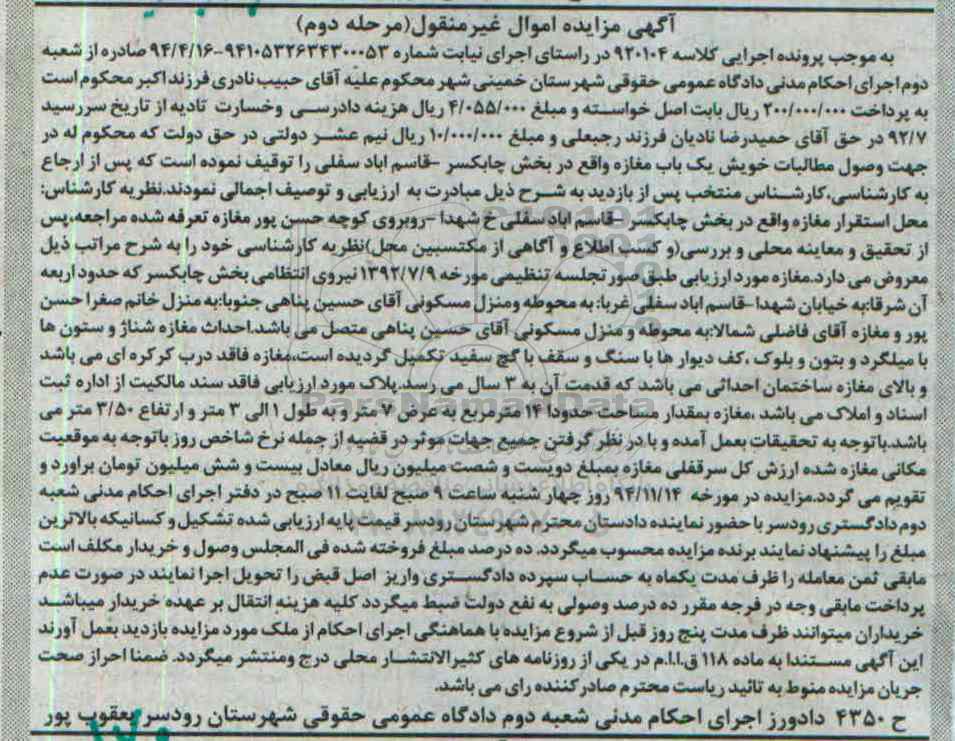 آگهی مزایده اموال غیرمنقول(مرحله دوم)
به موجب پرونده اجرایی کلاسه ۹۲۰۱۰۴ در راستای اجرای نیابت شماره ۹۴۱۰۵۳۲۶۳۴۳۰۰۰۵۳-۹۴/۴/۱۶ صادره از شعبه
دوم اجرای احکام مدنی دادگاه عمومی حقوقی شهرستان خمینی شهر محکوم علیه آقای حبیب نادری فرزند اکبر محکوم است
به پرداخت ۲۰۰/۰۰۰/۰۰۰ ریال بابت اصل خواسته و مبلغ ۴/۰۵۵/۰۰۰ ریال هزینه دادرسی وخسارت تادیه از تاریخ سررسید
۹۲/۷ در حق آقای حمیدرضا نادیان فرزند رجبعلی و مبلغ ۱۰/۰۰۰/۰۰۰ ریال نیم عشر دولتی در حق دولت که محکوم له در
جهت وصول مطالبات خویش یک باب مغازه واقع در بخش چابکسر -قاسم اباد سفلی را توقیف نموده است که پس از ارجاع
به کارشناسی،کارشناس منتخب پس از بازدید به شرح ذیل مبادرت به ارزیابی و توصیف اجمالی نمودند.نظریه کارشناس:
محل استقرار مغازه واقع در بخش چابکسر -قاسم اباد سفلی خ شهدا -روبروی کوچه حسن پور مغازه تعرفه شده مراجعه،پس
از تحقیق و معاینه محلی و بررسی(و کسب اطلاع و آگاهی از مکتسبین محل)نظریه کارشناسی خود را به شرح مراتب ذیل
معروض می دارد.مغازه مورد ارزیابی طبق صورتجلسه تنظیمی مورخه ۱۳۹۲/۷/۹ نیروی انتظامی بخش چابکسر که حدود اربعه
آن شرقا:به خیابان شهدا-قاسم اباد سفلی غربا: به محوطه ومنزل مسکونی آقای حسین پناهی جنوبا:به منزل خانم صغرا حسن
پور و مغازه آقای فاضلی شمالا:به محوطه و منزل مسکونی آقای حسین پناهی متصل می باشد.احداث مغازه شناژ و ستون ها
با میلگرد و بتون و بلوک ،کف دیوار ها با سنگ و سقف با گچ سفید تکمیل گردیده است،مغازه فاقد درب کرکره ای می باشد
و بالای مغازه ساختمان احداثی می باشد که قدمت آن به ۳ سال می رسد.پلاک مورد ارزیابی فاقد سند مالکیت از اداره ثبت
اسناد و املاک می باشد ،مغازه بمقدار مساحت حدودا ۱۴ مترمربع به عرض ۷ متر و به طول ۱ الی ۳ متر و ارتفاع ۳/۵۰ متر می
باشد.باتوجه به تحقیقات بعمل آمده و با در نظر گرفتن جمیع جهات موثر در قضیه از جمله نرخ شاخص روز باتوجه به موقعیت
مکانی مغازه شده ارزش کل سرقفلی مغازه بمبلغ دویست و شصت میلیون ریال معادل بیست و شش میلیون تومان براورد و
تقویم می گردد.مزایده در مورخه ۹۴/۱۱/۱۴ روز چهار شنبه ساعت ۹ صبح لغایت ۱۱ صبح در دفتر اجرای احکام مدنی شعبه
دوم دادگستری رودسر با حضور نماینده دادستان محترم شهرستان رودسر قیمت پایه ارزیابی شده تشکیل و کسانیکه بالاترین
مبلغ را پیشنهاد نمایند برنده مزایده محسوب میگردد. ده درصد مبلغ فروخته شده فی المجلس وصول و خریدار مکلف است
مابقی ثمن معامله را ظرف مدت یکماه به حساب سپرده دادگستری واریز اصل قبض را تحویل اجرا نمایند در صورت عدم
پرداخت مابقی وجه در فرجه مقرر ده درصد وصولی به نفع دولت ضبط میگردد کلیه هزینه انتقال بر عهده خریدار میباشد
خریداران میتوانند ظرف مدت پنج روز قبل از شروع مزایده با هماهنگی اجرای احکام از ملک مورد مزایده بازدید بعمل آورند
این آگهی مستندا به ماده ۱۱۸ ق.ا.ا.م در یکی از روزنامه های کثیرالانتشار محلی درج ومنتشر میگردد. ضمنا احراز صحت
جریان مزایده منوط به تائید ریاست محترم صادرکننده رای می باشد.
ح ۴۳۵۰ دادورز اجرای احکام مدنی شعبه دوم دادگاه عمومی حقوقی شهرستان رودسر یعقوب پور
ParsNamadData